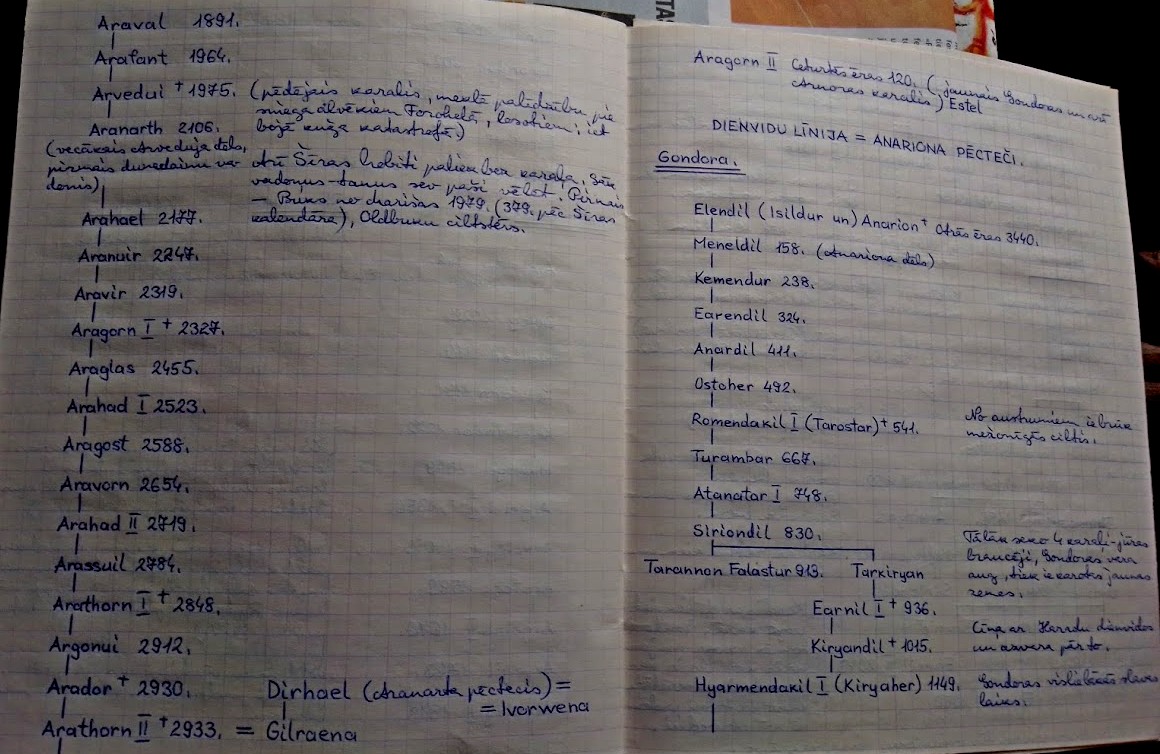 Araval 1891.
Arafant 1964.
Arvedui + 1975. (pēdējais karalis, meklē palīdzību pie
sniega cilvēkiem Forohelā, losotiem; iet
bojā kuģa katastrofā.)
Aranarth 2106.
(vecākais Arveduja dēls,
pirmais dunedainu va-
donis)
Arī Šīras hobiti paliek bez karaļa. Sāk
vadoņus-tanus sev paši vēlēt. Pirmais
– Buka no Marišas 1979. (379. pēc Šīras
kalendāra), Oldbuku ciltstēvs.
Arahael 2177.
Aranuir 2247.
Aravir 2319.
Aragorn I + 2327.
Araglas 2455.
Arahad I 2523.
Aragost 2588.
Aravorn 2654.
Arahad II 2719.
Arassuil 2784.
Arathorn I + 2848.
Argonui 2912.
Arador + 2930.
Dirhael (Aranarta pēctecis) =
= Ivorwena
Arathorn II + 2933. = Gilraena
Aragorn II Ceturtās ēras 120. (jaunais Gondoras un arī
Arnoras karalis) Estel
DIENVIDU LĪNIJA = ANARIONA PĒCTEČI.
Gondora.
Elendil (Isildur un) Anarion + Otrās ēras 3440.
Meneldil 158. (Anariona dēls)
Kemendur 238.
Earendil 324.
Anardil 411.
Ostoher 492.
Romendakil I (Tarostar) + 541.
No austrumiem iebrūk
mežonīgās ciltis.
Turambar 667.
Atanatar I 748.
Siriondil 830.
Tālāk seko 4 karaļi-jūras
braucēji, Gondoras vara
aug, tiek iekarotas jaunas
zemes.
Tarannon Falastur 913. Tarkiryan
Earnil I + 936.
Cīņa ar Haradu dienvidos
un asvera pār to.
Kiryandil + 1015.
Hyarmendakil I (Kiryaher) 1149.
Gondoras vislielākās slavas
laiks.